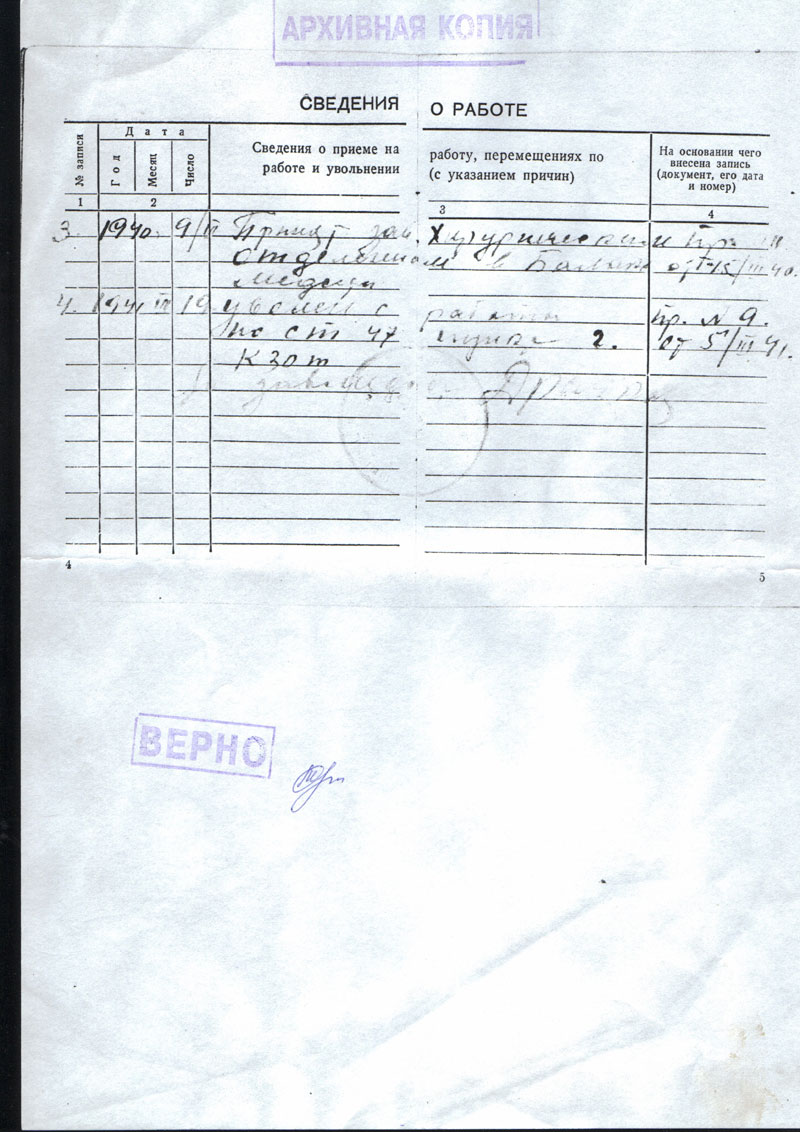 АРХИВНАЯ КОПИЯ
СВЕДЕНИЯ О РАБОТЕ
№ записи
Дата
Год
Месяц
Число
Сведения о приеме на
работе и увольнении
работу, перемещениях по
(с указанием причин)
На основании чего
внесена запись
(документ, его дата
и номер)
1 2 3 4
3. 1940. 9/ Принят зав. Хирургическим Пр.
отделением в от 15/III 40.
4. 1941 III 19 уволен с работы пр. № 9.
по ст 47 2. от 5/III 41.
КЗот
4
5
ВЕРНО